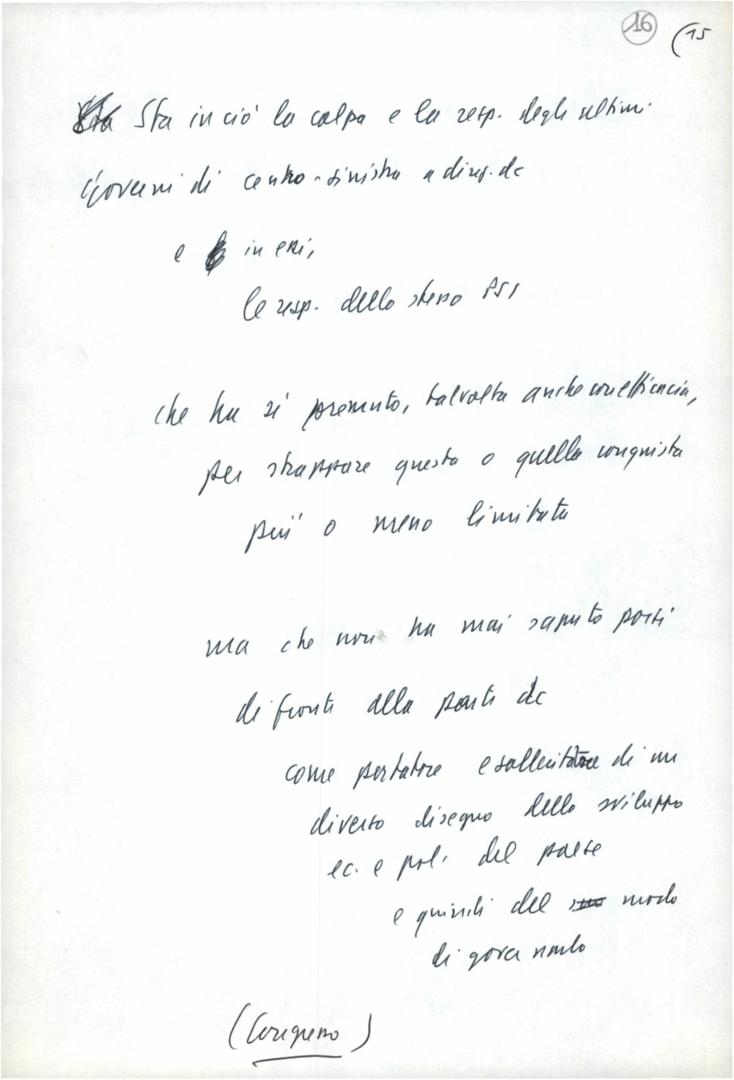 16 (15
Sta Sta in ciò la colpa e la resp. degli ultimi
Governi di centro-sinistra a direz. dc
e in essi,
le resp. dello stesso PSI
che ha sì premuto, talvolta anche con efficacia,
per strappare questa o quella conquista
più o meno limitata
ma che non ha mai saputo porsi
di fronte alla parte dc
come portatore e sollecitatore di un
diverso disegno dello sviluppo
ec. e pol. del paese
e quindi del modo
di governarlo
(Congresso)